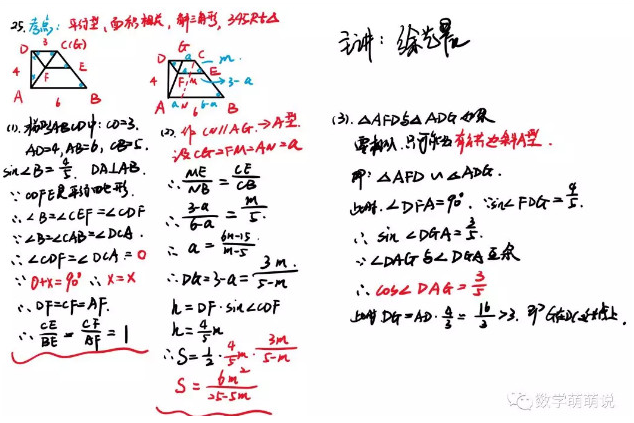 25. 考点: 平行型, 面积相关, 解三角形, 345Rt△
D 3 C(G)
4 F E
A 6 B
G
D a C m
4 F M E 3-a
A a N 6-a B
6
(1). 梯形ABCD中: CD=3.
AD=4, AB=6, CB=5.
sin∠B=4/5. DA⊥AB.
∵ CDFE是平行四边形.
∴ ∠B=∠CEF=∠CDF
∵ ∠B=∠CAB=∠DCA.
∴ ∠CDF=∠DCA=O
∵ O+x=90° ∴ x=x
∴ DF=CF=AF.
∴ CE/BE=CF/AF=1
(2). 作CN∥AG. →A型
设CG=FM=AN=a
∴ ME/NB=CE/CB
∴ 3-a/6-a=m/5.
∴ a=6m-15/m-5.
∴ DG=3-a=3m/5-m.
h=DF·sin∠CDF
h=4/5m
∴ S=1/2·4/5m·3m/5-m
S=6m²/25-5m
主讲:
(3). △AFD与△ADG
要相似.只可能为有公共边斜A型.
即: △AFD∽△ADG.
此时. ∠DFA=90°. ∵sin∠FDG=4/5.
∴ sin∠DGA=3/5.
∵ ∠DAG与∠DGA互余
∴ cos∠DAG=3/5
此时DG=AD·4/3=16/3>3. 即G在DC延长线上.
数学萌萌说